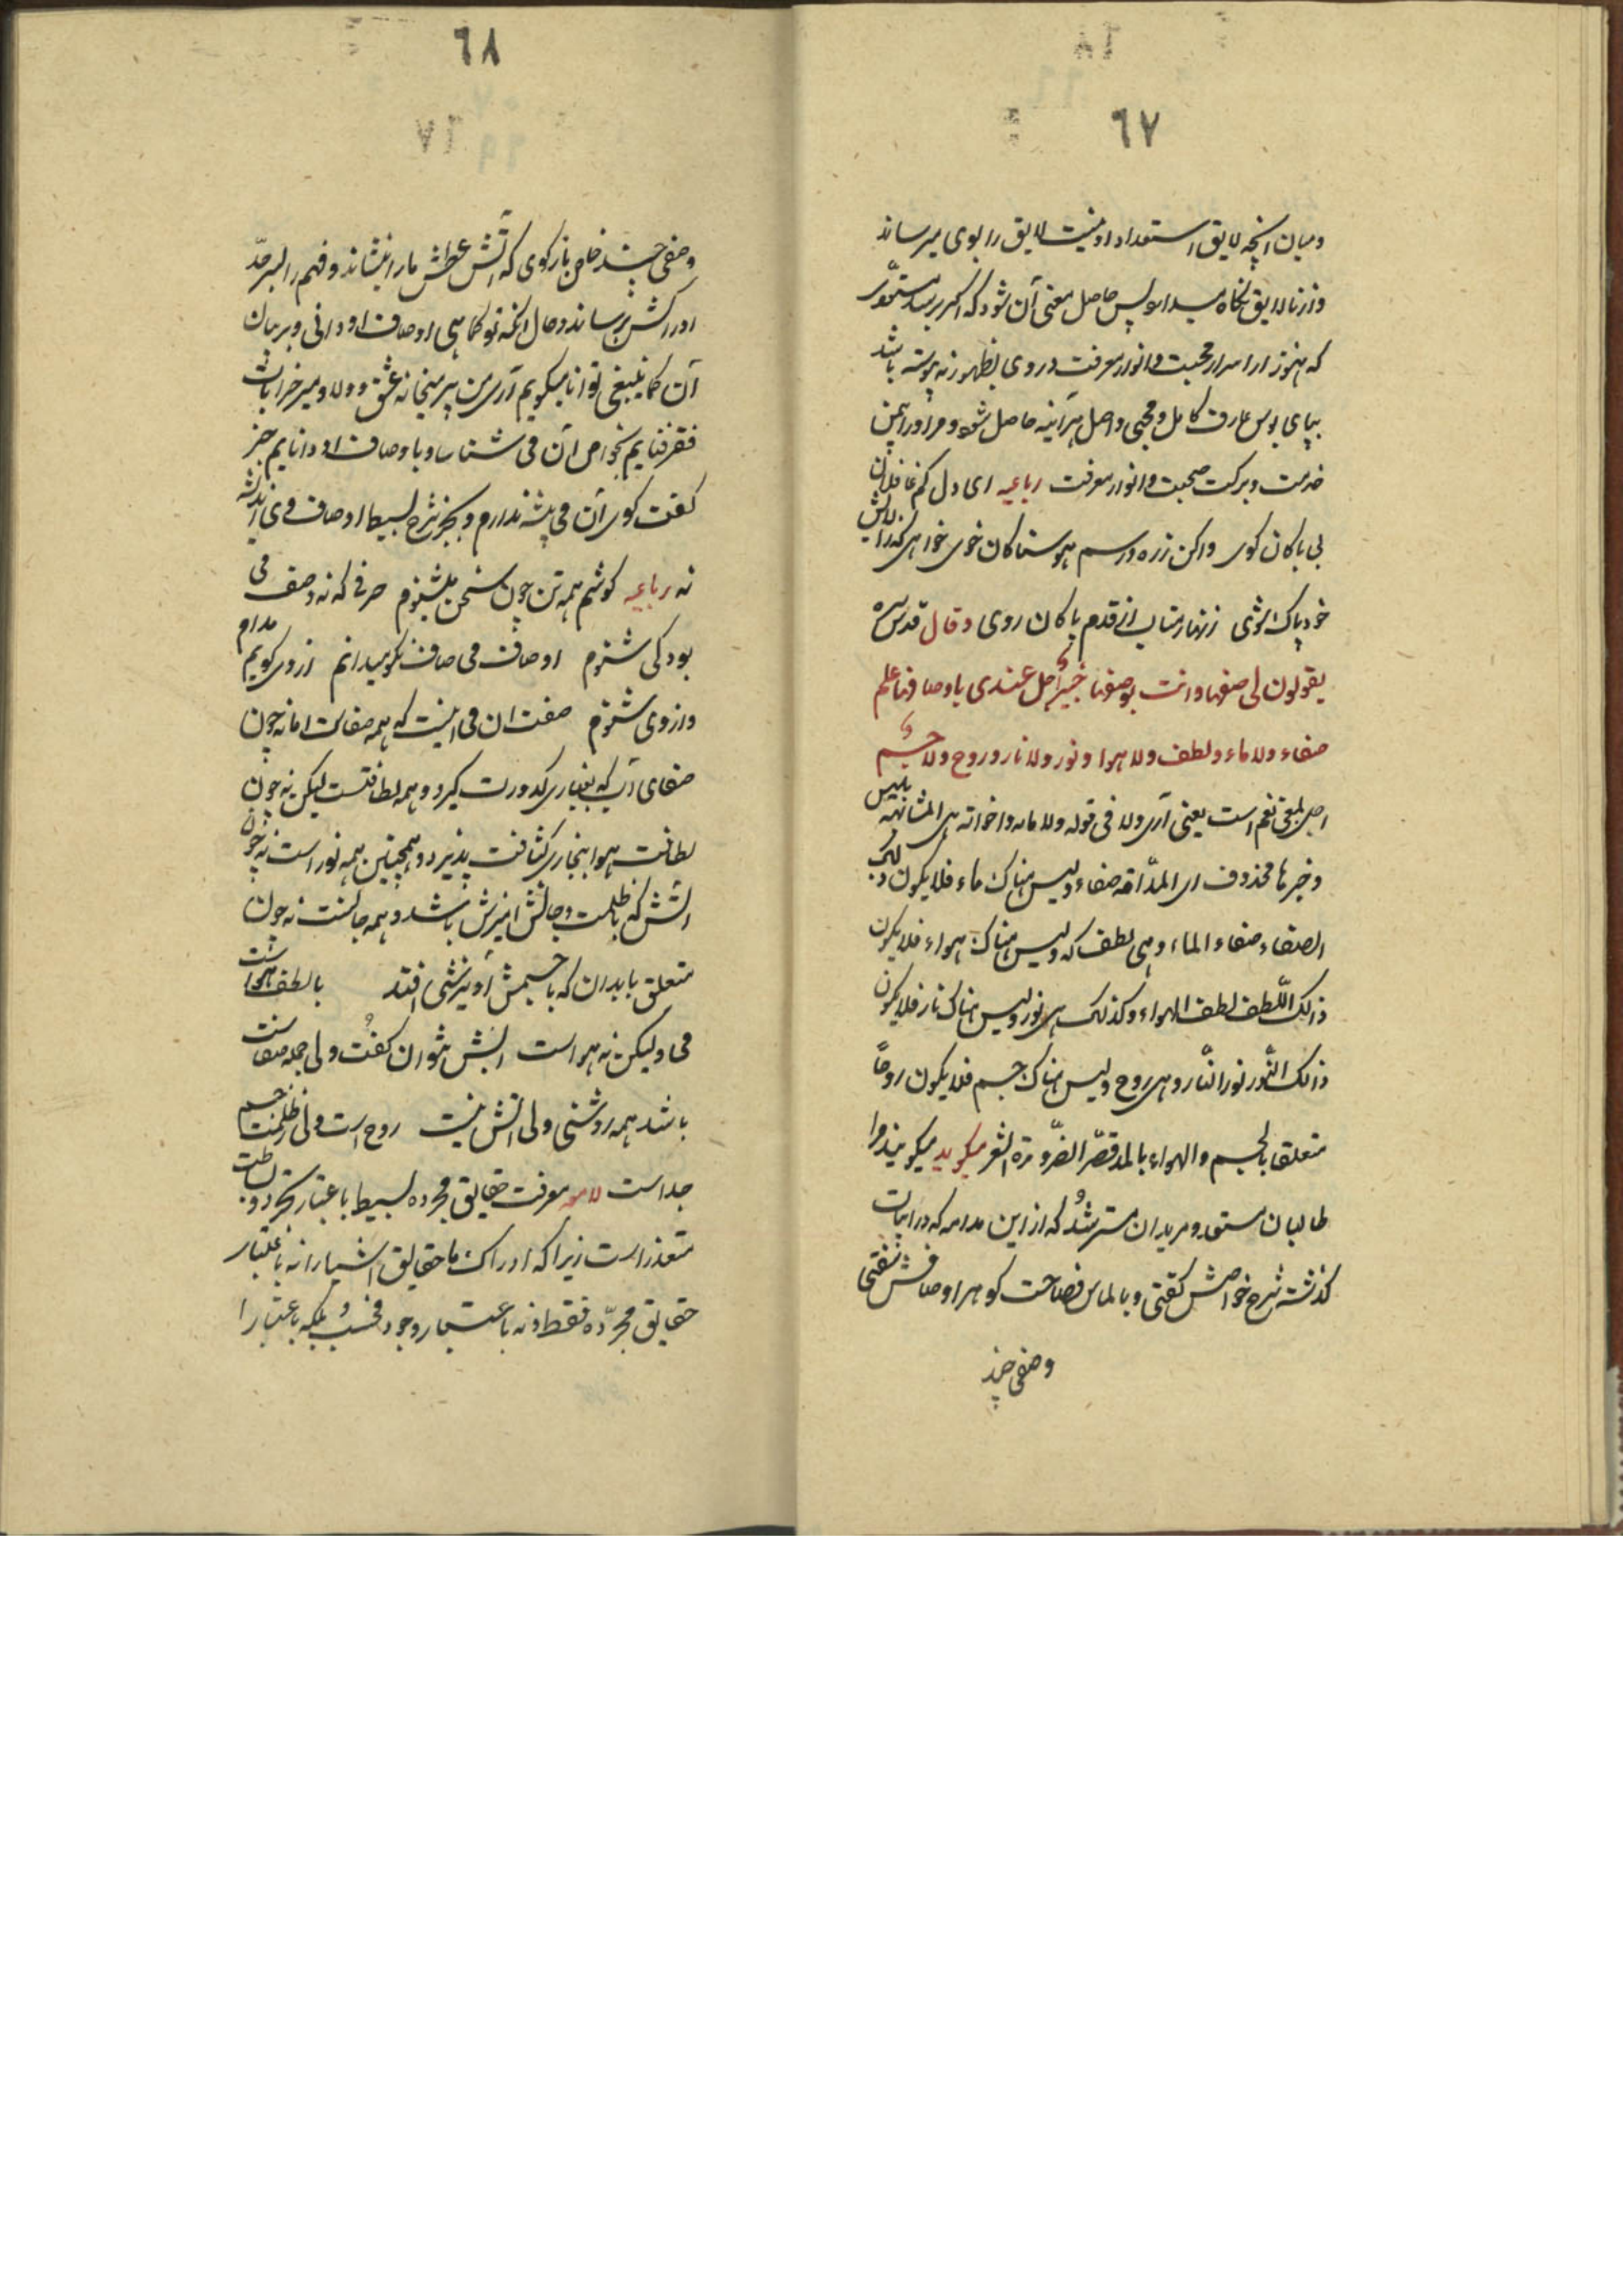 ٦٧
و میان آنچه لایق استعداد او نیست لایق را بوی میرساند
و از نالایق نگاه میدارد پس حاصل معنی آن شود که اگر برسد مستعدّی
که هنوز از اسرار محبت و انوار معرفت در وی بظهور نه پیوسته باشد
بپای بوس عارف کامل و محبی واصل هرآینه حاصل شود مر او را بیمن
خدمت و برکت صحبت و انوار معرفت رباعیه ای دل کم غافلان
بی باکان کوی و اکن زره و رسم هوسناکان خوی خواهی که
خود پاک شوی زنهار متاب از قدم پاکان روی و قال قدس سره
یقولون لی صفها وانت بوصفها خبیرٌ اجل عندی باوصافها علم
صفاء ولا ماء ولطف ولا هوا ونور ولا نار وروح ولا جسم
اجل بمعنی نعم است یعنی آری ولا فی قوله ولا ماء واخواته هی المشابهة بلیس
وخبرها محذوف ای المدامة صفاء ولیس هناک ماء فلا یکون ذلک
الصفاء صفاء الماء وهی لطف که ولیس هناک هواء فلا یکون
ذلک اللّطف لطف الهواء وکذلک هی نور ولیس هناک نار فلا یکون
ذلک النّور نور النّار وهی روح ولیس هناک جسم فلا یکون روحاً
متعلقا بالجسم والهواء بالمد قصّر الضّرورة الشعر میکوید میکویند مرا
طالبان مستعد و مریدان مسترشد که از این مدامه که در ابیات
کذشته شرح خواصش کفتی و بالماس فصاحت کوهر اوصافش سفتی
وصفی چند
٦٨
وصفی چند خاص بازکوی که آتش عطش ما را بنشاند و فهم را بسرحدّ
ادراکش برساند و حال آنکه تو کماهی اوصاف او دانی و بر بیان
آن کما ینبغی توانا میکویم آری من پیر میخانه عشق و ولا و میر خرابات
فقر و فنایم بخواص آن می شناسا و باوصاف او دانایم جز
کفت کوی آن می پیشه ندارم و بجز شرح و بسیط اوصاف وی اندیشه
نه رباعیه کوشم همه تن چون سخن می شنوم حرفی که نه وصف می
بود کی شنوم اوصاف می صاف نکو میدانم از وی کویم مدام
و از وی شنوم صفت آن می اینست که همه صفاست اما نه چون
صفای آب که بغباری کدورت کیرد و همه لطافتست لیکن نه چون
لطافت هوا ببخاری کثافت پذیرد و همچنین همه نور است نه چون
آتش که با ظلمت دخانش آمیزش باشد و همه جانست نه چون
متعلق بابدان که با جسمش آویزشی افتد با لطف هواست
می ولیکن نه هواست آبش نتوان کفت ولی جمله صفاست
باشد همه روشنی ولی آتش نیست روح است ولی از ظلمت جسم
جداست لامعه معرفت حقایق مجرده بسیط باعتبار تجرد و بساطت
متعذر است زیرا که ادراک ما حقایق اشیا را نه باعتبار
حقایق مجرّده فقط و نه باعتبار وجود فحسب بلکه باعتبار